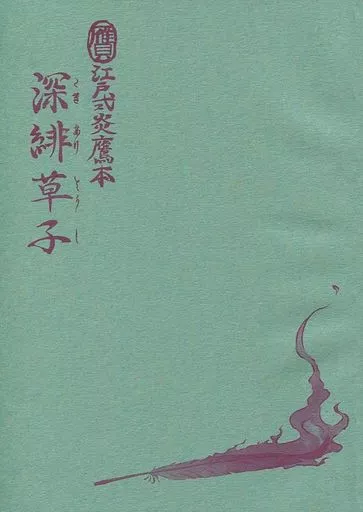 贋
江戸弐炎鷹本
深緋草子
こき あけ とうし